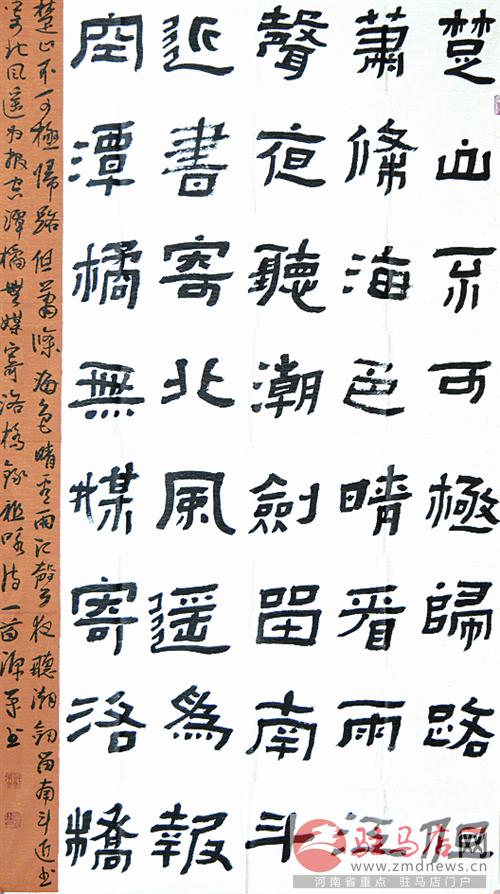 楚山不可極歸路但
蕭條海色晴看雨江
聲夜聽潮劍留南斗
近書寄北風遥為報
空潭橘無媒寄洛橋
楚山不可極歸路但蕭條海色晴看雨江聲夜聽潮劍留南斗近书
寄北风遥为报空潭橘無媒寄洛橋錄祖咏詩一首
驻马店网
www.zmdnews.cn
河南省重点 驻马店门户